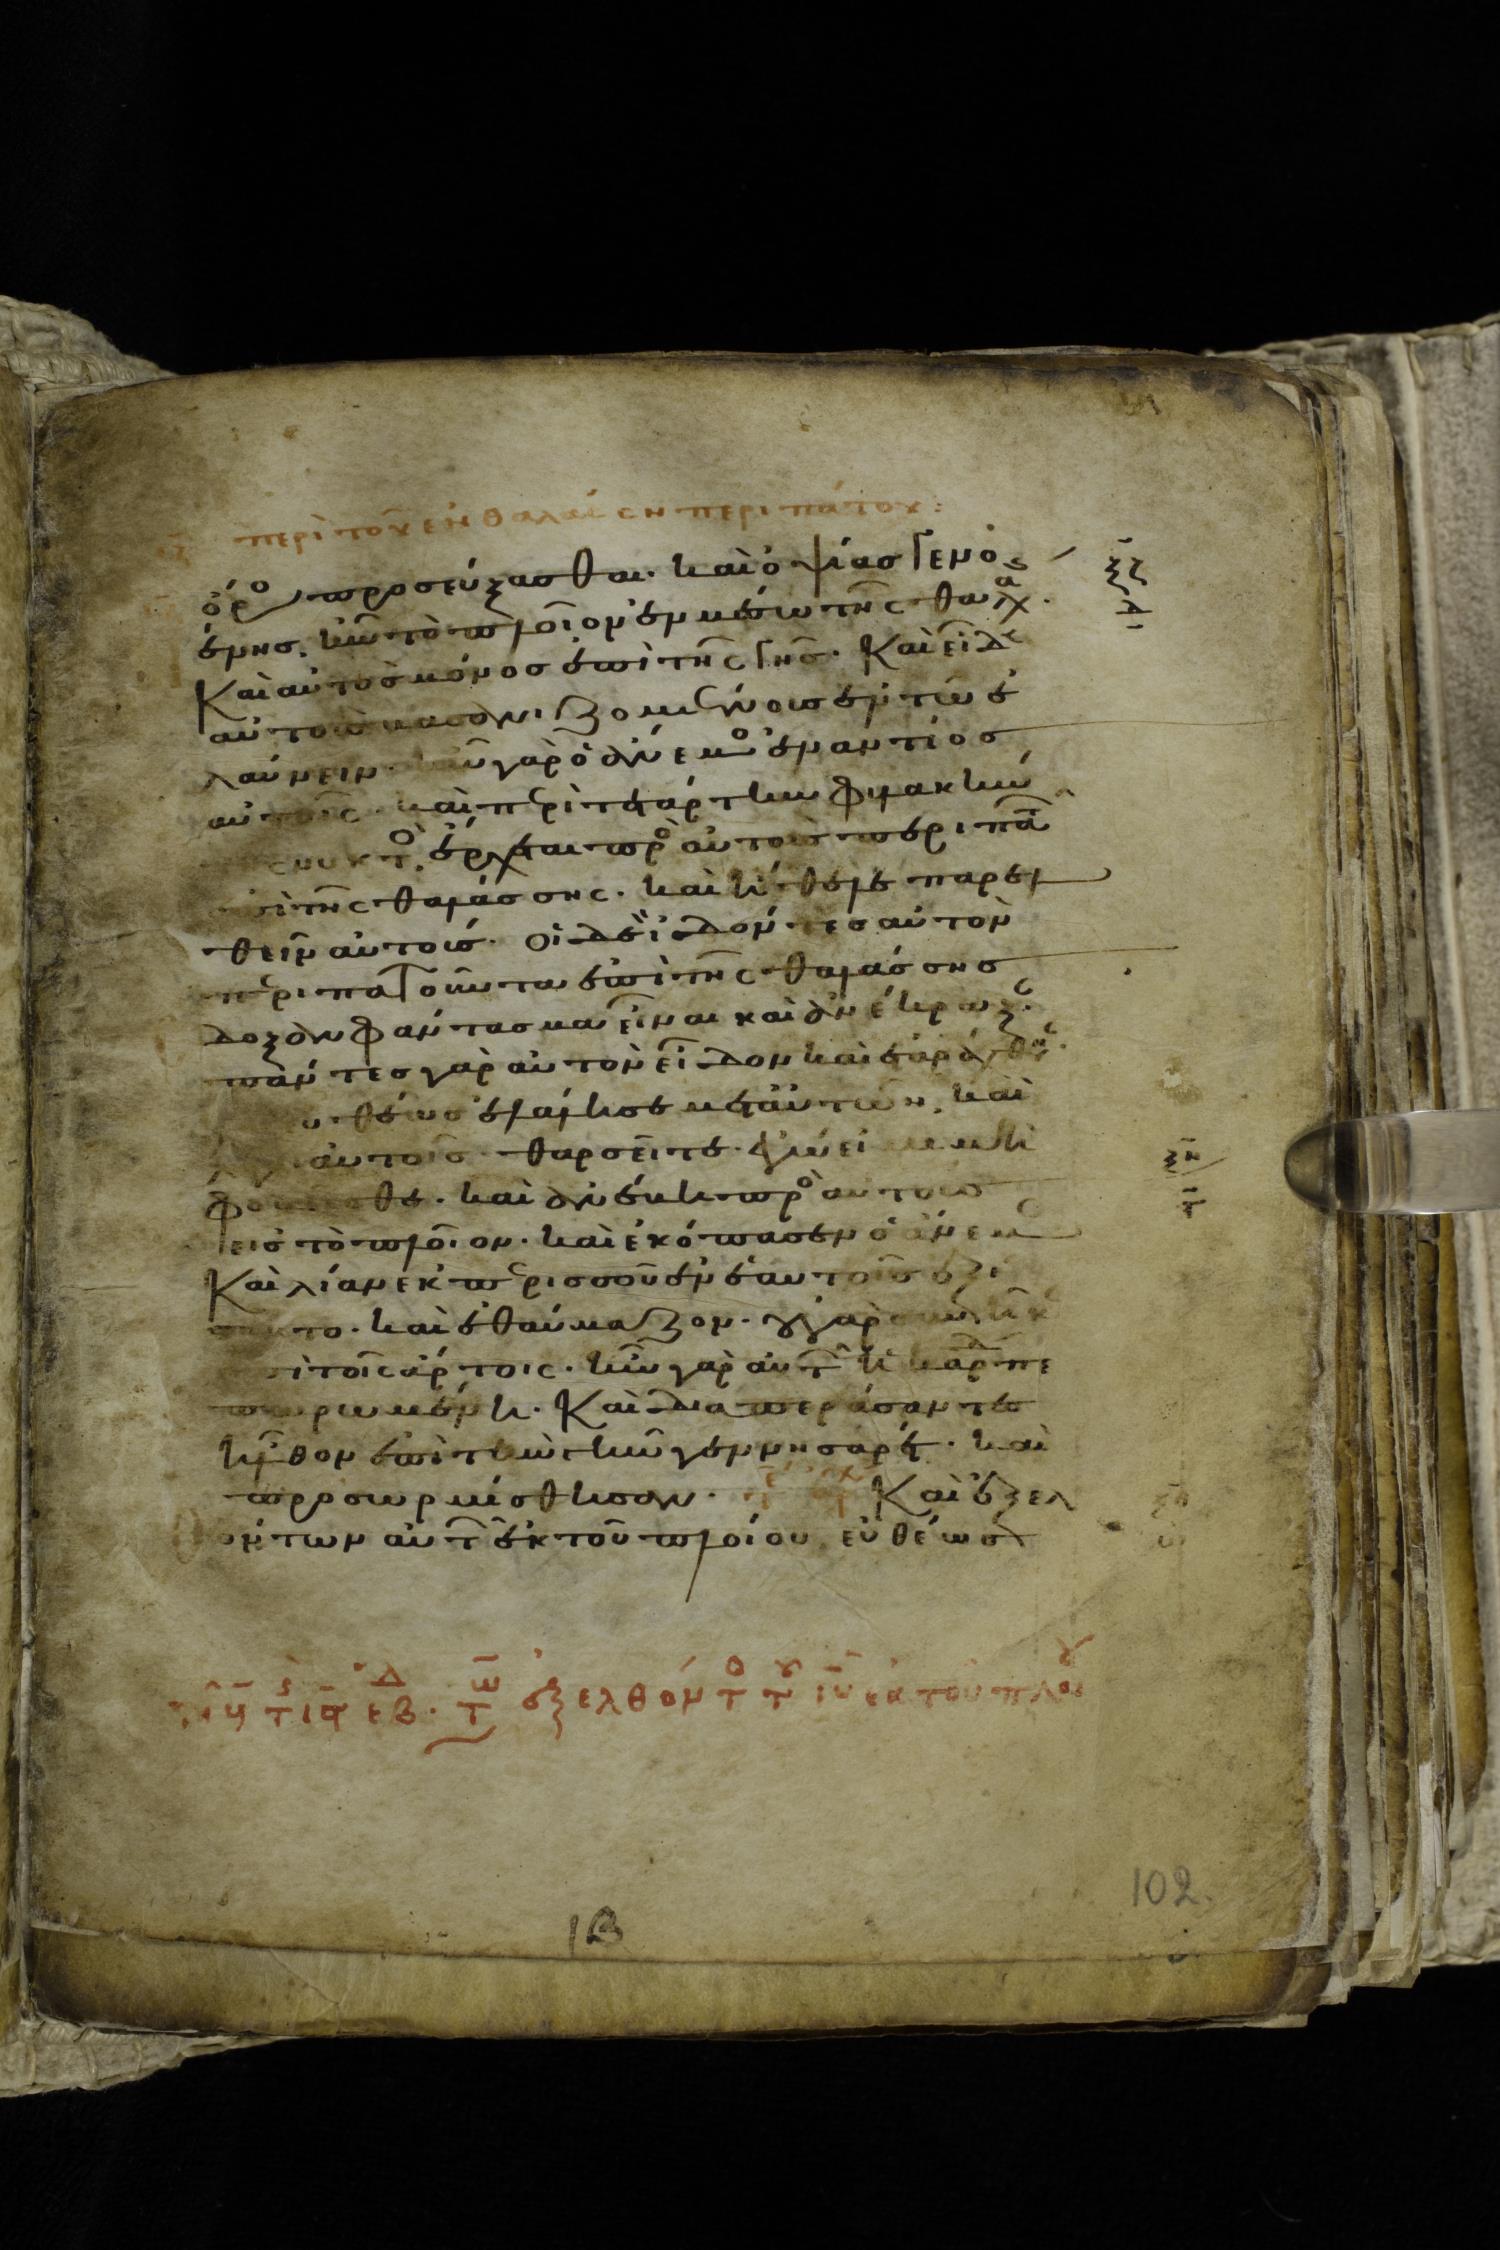 περὶ τοῦ ἐν θαλάσσῃ περιπάτου:
ὄρο προσεύξασθαι· καὶ ὀψίας γενο
ένης, ἦν τὸ πλοῖον ἐν μέσω τῆς θαλ
Καὶ αὐτὸς μόνος ἐπὶ τῆς γῆς· Καὶ εἶδε
αὐτοὺς βασανιζομένους ἐν τῶ ἐ
λαύνειν· ἦν γὰρ ὁ ἄνεμο ἐναντίος
αὐτοῖς· καὶ περὶ τετάρτην φυλακὴν
νυκτὸ, ἔρχεται πρὸ αὐτοὺς περιπα
ἐπὶ τῆς θαλάσσης· καὶ ἤθελε παρελ
θεῖν αὐτούς· οἱ δὲ ἰδόντες αὐτὸν
περιπατοῦντα ἐπὶ τῆς θαλάσσης
ἔδοξαν φάντασμα εἶναι καὶ ἀνέκραξ
πάντες γὰρ αὐτὸν εἶδον καὶ ἐταράχθη
εὐθέως ἐλάλησε μετ αὐτῶν, καὶ
αὐτοῖς· θαρσεῖτε· ἐγώ εἰμι μὴ
φοβεῖσθε· καὶ ἀνέβη πρὸ αὐτοὺς
εἰς τὸ πλοῖον· καὶ ἐκόπασεν ὁ ἄνεμ
Καὶ λίαν ἐκ περισσοῦ ἐν ἑαυτοῖς ἐξί
σταντο· καὶ ἐθαύμαζον· οὐ γὰρ συνῆκ
ἐπὶ τοῖς ἄρτοις· ἦν γὰρ αὐτ ἡ καρδ πε
πωρωμένη· Καὶ διαπεράσαντες
ἦλθον ἐπὶ τὴν γῆν γεννησαρέτ· καὶ
προσωρμίσθησαν· Καὶ ἐξελ
θόντων αὐτ ἐκ τοῦ πλοίου εὐθέως
ἐξελθόντ τ ιυ ἐκ τοῦ πλοι
ιβ
102.